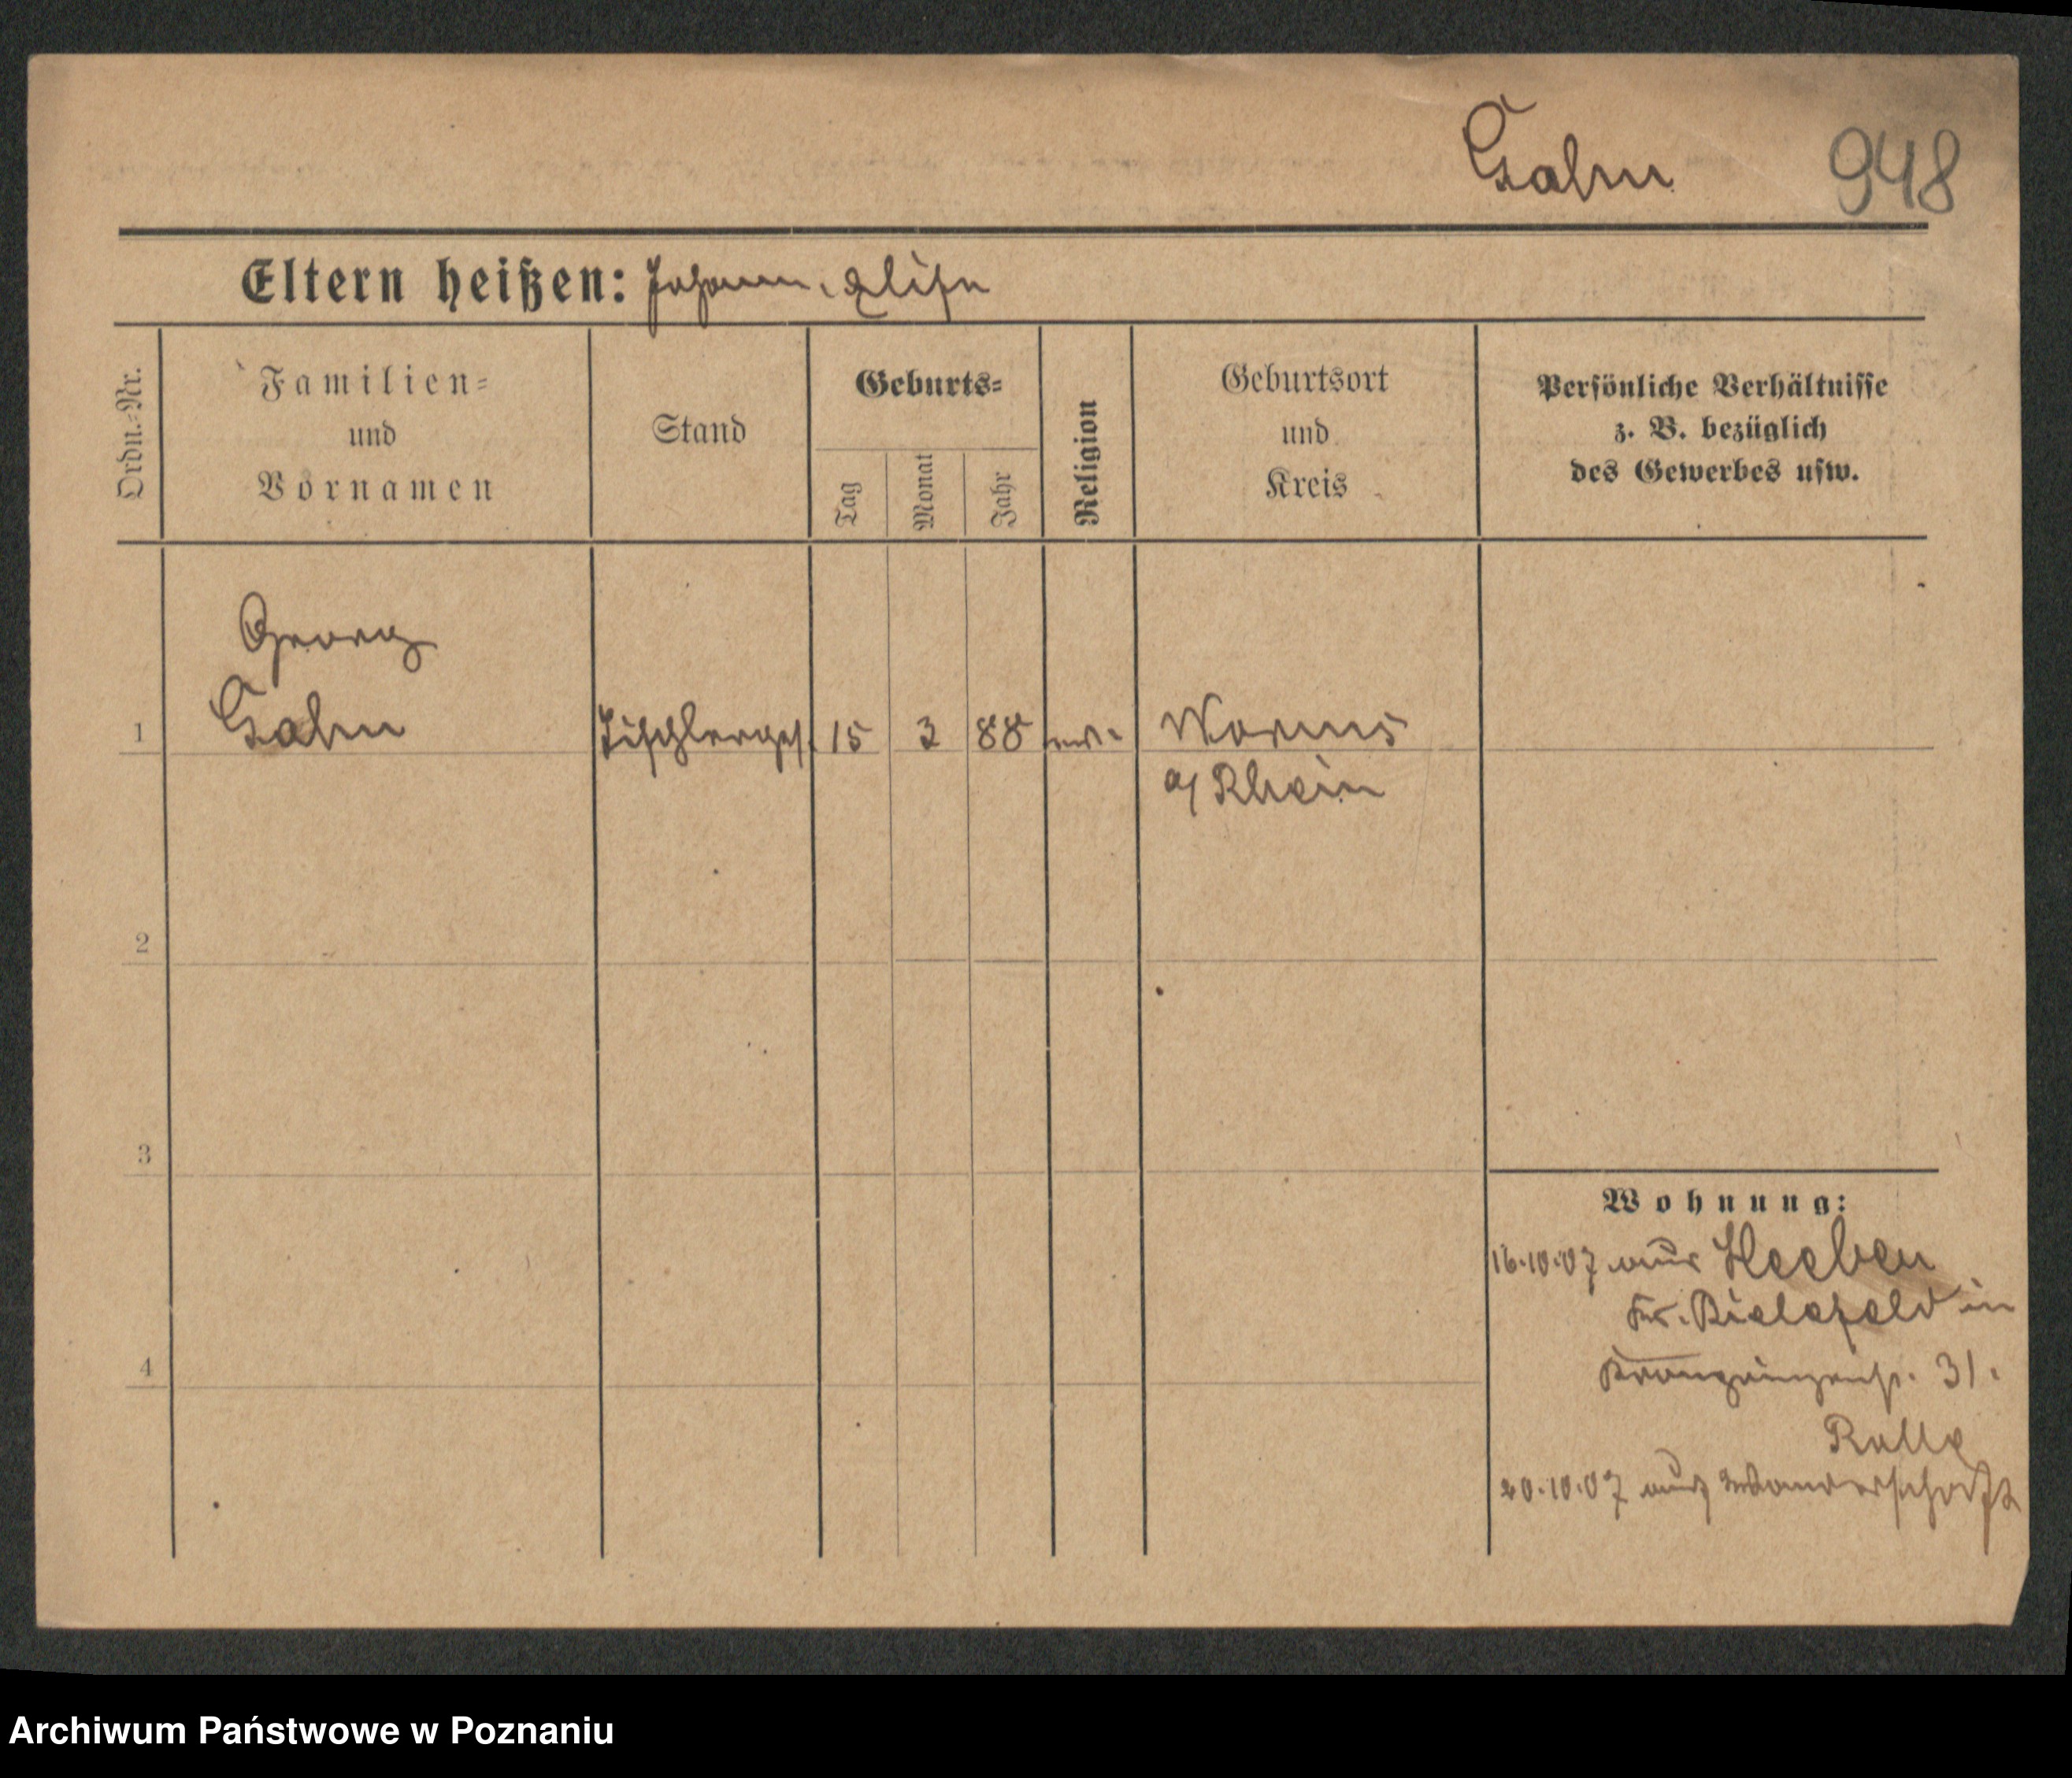 Gahn 948
Eltern heißen: Johann, Elise
Ordn.-Nr.
Familien-
und
Vornamen
Stand
Geburts-
Tag
Monat
Jahr
Religion
Geburtsort
und
Kreis
Persönliche Verhältnisse
z. B. bezüglich
des Gewerbes usw.
Georg
1 Gahn Tischlerges. 15 3 88 ev. Worms
a/ Rhein
2
3
4
Wohnung:
16.10.07 aus Heeben
Kr. Bielefeld in
Kronprinzenstr. 31.
20.10.07 auf Wanderschaft
Archiwum Państwowe w Poznaniu